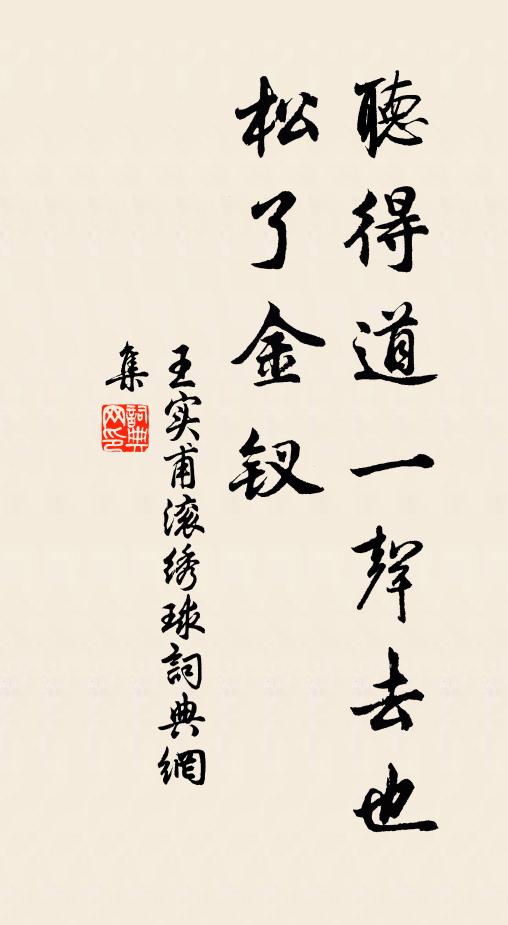 聽得道一聲去也
松了金钗
王实甫滚绣球詞典網
集
詞典
网印